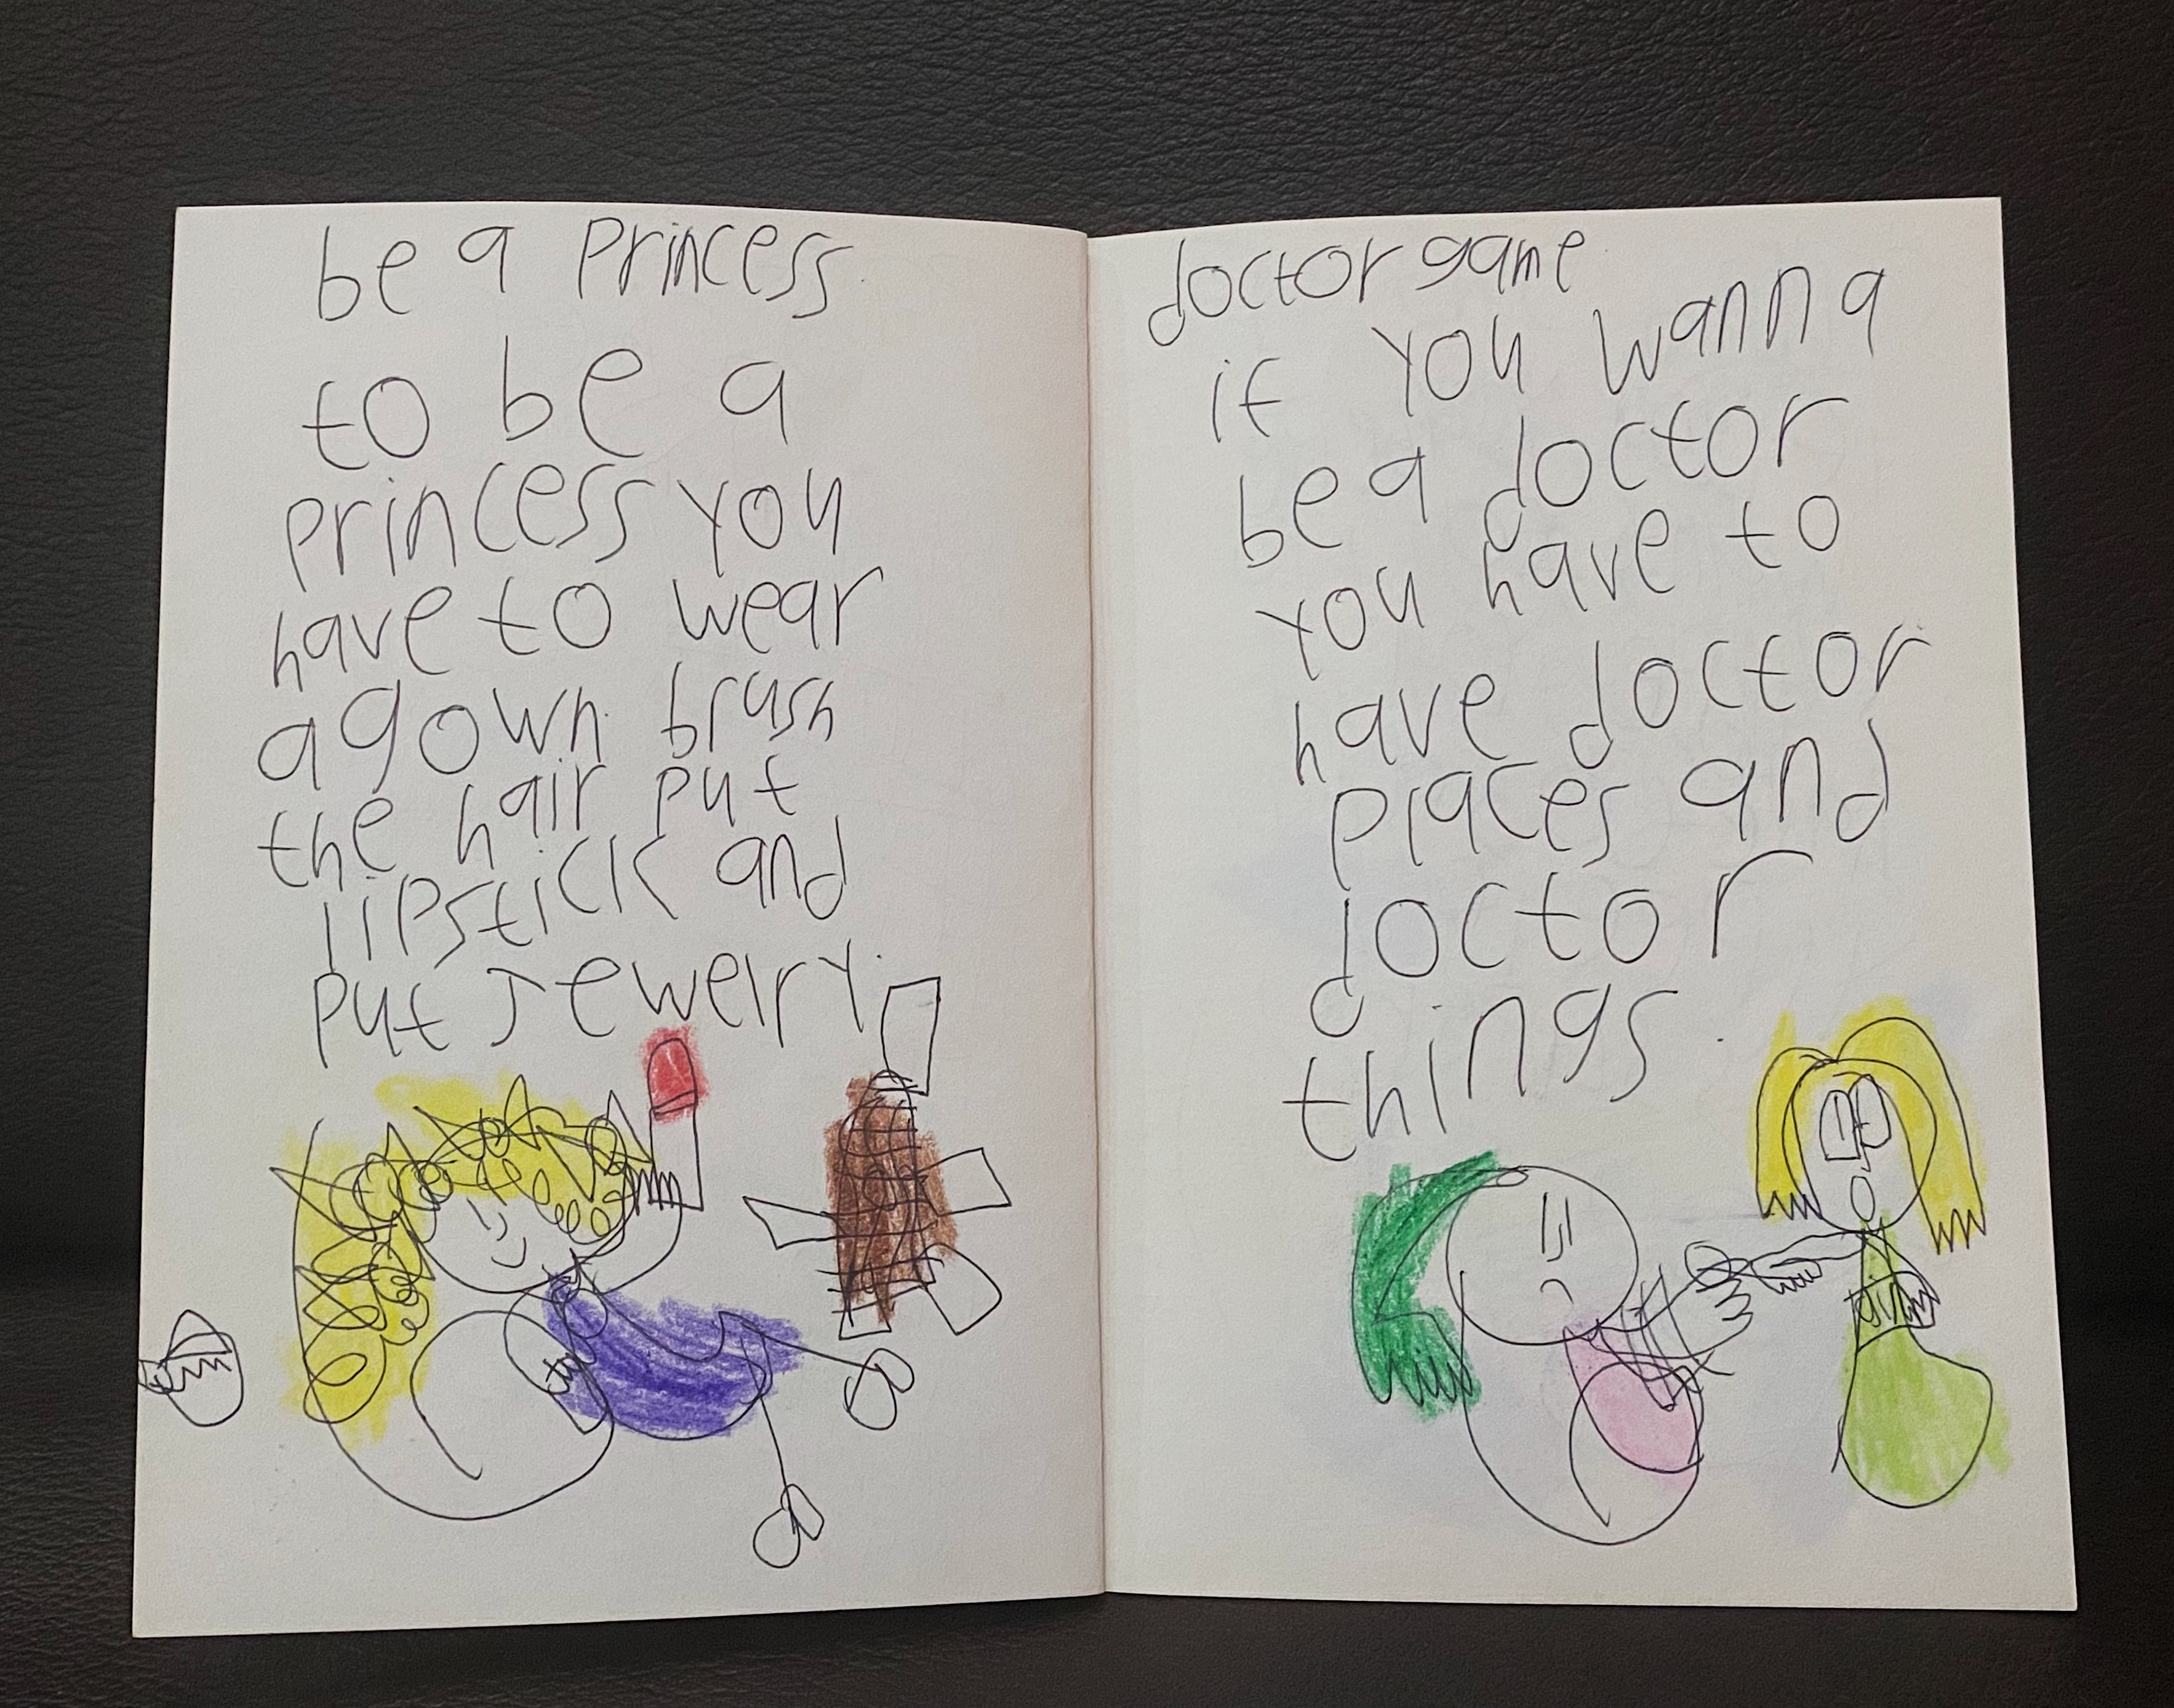 be a princess.
to be a
princess you
have to wear
a gown. brush
the hair put
lipstick and
put jewelry.
doctor game.
if you wanna
be a doctor
you have to
have doctor
places and
doctor
things.